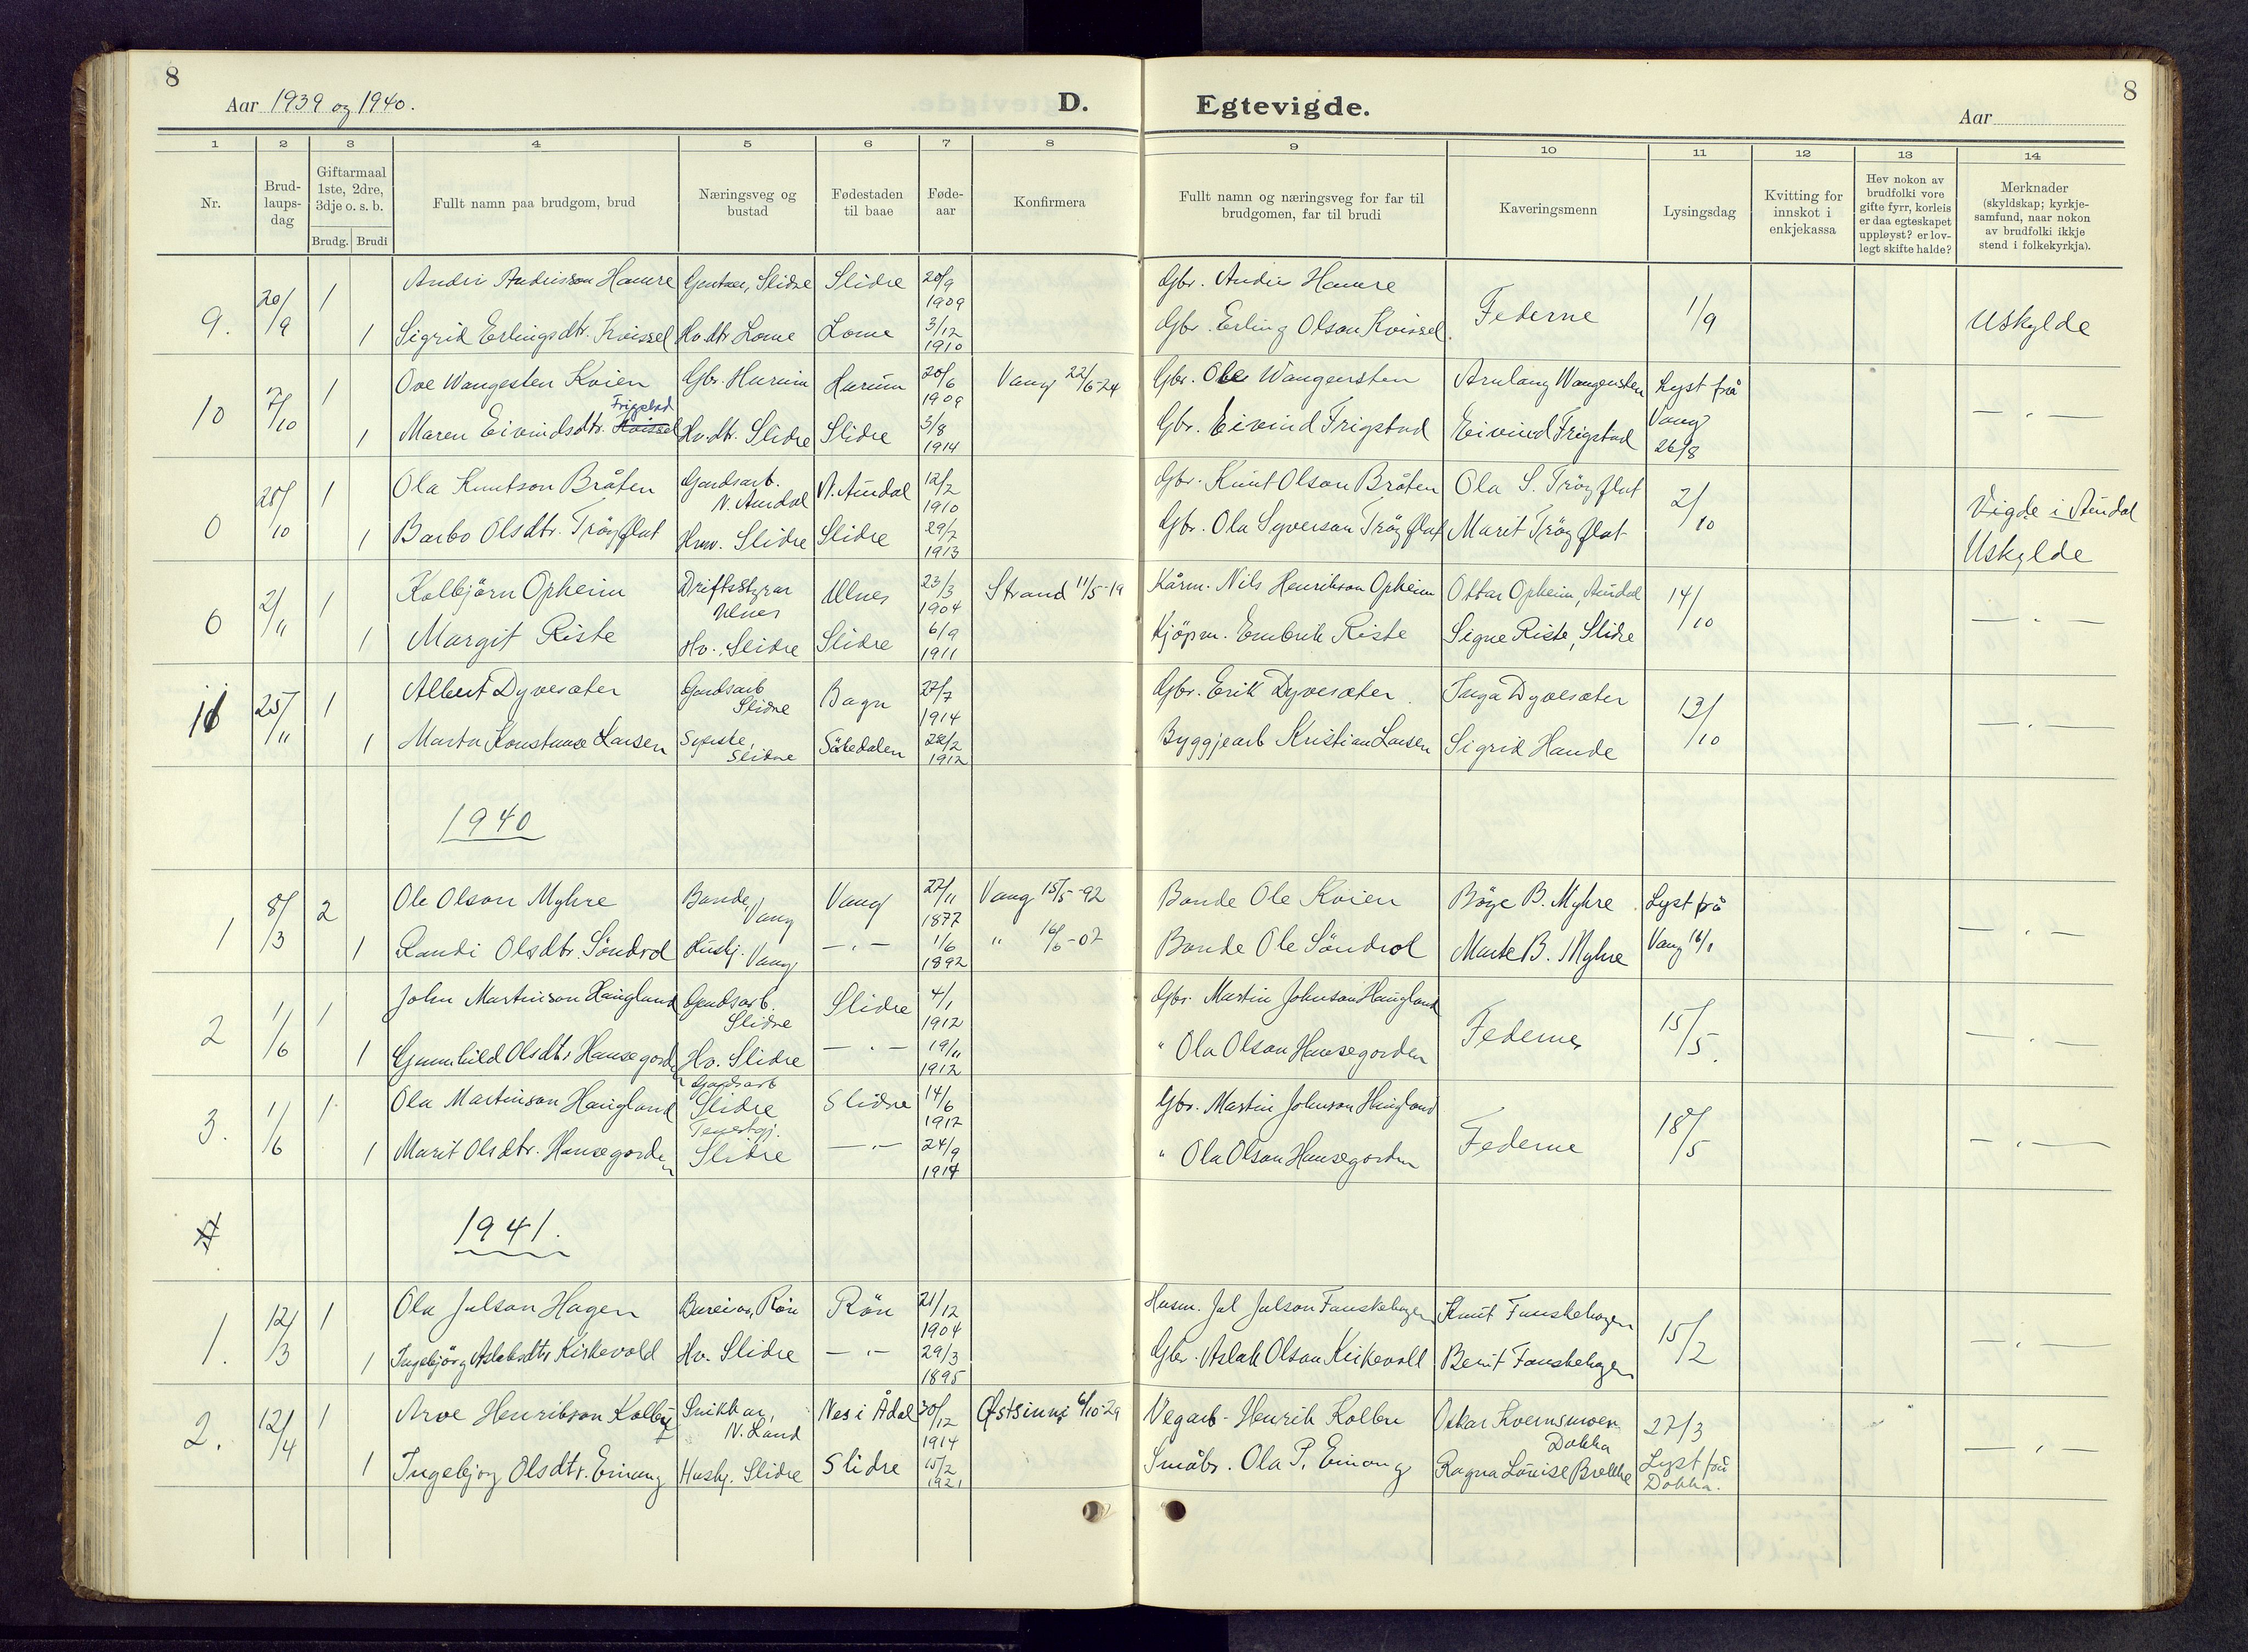 8
Aar 1939 og 1940.
D.
Egtevigde.
Aar
8
1 2 3 4 5 6 7 8 9 10 11 12 13 14
Nr.
Brud-
laups-
dag
Giftarmaal
1ste, 2dre,
3dje o. s. b.
Brudg. Brudi
Fullt namn paa brudgom, brud
Næringsveg og
bustad
Fødestaden
til baae
Føde-
aar
Konfirmera
Fullt namn og næringsveg for far til
brudgomen, far til brudi
Kaveringsmenn
Lysingsdag
Kvitting for
innskot i
enkjekassa
Hev nokon av
brudfolki vore
gifte fyrr, korleis
er daa egteskapet
uppløyst? er lov-
legt skifte halde?
Merknader
(skyldskap; kyrkje-
samfund, naar nokon
av brudfolki ikkje
stend i folkekyrkja).
9. 20/9 1 Andris Andrisson Hamre Slidre Slidre 20/9 1909 Gbr. Andris Hamre Federne 1/9 Uskylde
1 Sigrid Erlingsdtr. Kvissel Hv. dtr. Lome Lome 3/12 1910 Gbr. Erling Olson Kvissel.
10 7/10 1 Ove Wangesten Kvien Gbr. Hurum Hurum 20/6 1909 Vang 22/6-24 Gbr. Ole Wangensten Wangensten Lyst frå Vang 26/8 — " —
1 Maren Eivindsdtr. Kvissel Frigstad Hv. dtr. Slidre Slidre 3/8 1914 Gbr. Eivind Frigstad Eivind Frigstad
0 28/10 1 Ola Knutson Bråten Gardsarb. N. Aurdal N. Aurdal 12/2 1910 Gbr. Knut Olson Bråten Ola S. Tröyflat 2/10 Vigde i Aurdal
1 Barbo Olsdtr. Tröyflat Slidre Slidre 29/7 1913 Gbr. Ola Syverson Tröyflat Marit Tröyflat Uskylde
0 2/11 1 Kolbjörn Opheim Driftsstyrar Ulnes Ulnes 23/3 1904 Strand 11/5-19 Kårm. Nils Henrikson Opheim Ottar Opheim, Aurdal 14/10 — " —
1 Margit Riste Hv. Slidre Slidre 6/9 1911 Kjöpm. Embrik Riste Signe Riste, Slidre
11 25/11 1 Albert Dyvesæter Gardsarb Slidre Bagn 27/7 1914 Gbr. Erik Dyvesæter Inga Dyvesæter 13/10 — " —
1 Marta Konstanse Larsen Syerske, Slidre Sörkedalen 28/2 1912 Byggjearb Kristian Larsen Sigrid Hande
1940
1 8/3 2 Ole Olson Myhre Bonde, Vang Vang 27/11 1877 Vang 15/5-92 Bonde Ole Kvien Böye B. Myhre Lyst frå — " —
1 Randi Olsdtr. Söndrol Hushj. Vang — " — 1/6 1892 " 16/6-07 Bonde Ole Söndrol Marte B. Myhre Vang 16/1
2 1/6 1 John Martinson Haugland Gardsarb. Slidre Slidre 4/1 1912 Gbr. Martin Johnson Haugland Federne 15/5. — " —
1 Gunnhild Olsdtr. Hausegorden Hv. Slidre — " — 19/11 1912 " Ola Olson Hausegorden
3. 1/6 1 Ola Martinson Haugland Gardsarb Slidre Slidre 14/6 1917 Gbr. Martin Johnson Haugland Federne 18/5 — " —
1 Marit Olsdtr. Hausegorden Tenestgj. Slidre — " — 24/9 1914 " Ola Olson Hausegorden
1941.
1. 12/3 1 Ola Julson Hagen Rön Rön 21/12 1904 Husm. Jul Julson Fauskehagen Knut Fauskehagen 15/2 — " —
1 Ingebjörg Aslaksdtr Kirkevold Hv. Slidre — " — 29/3 1895 Gbr. Aslak Olson Kirkevoll Berit Fauskehagen
2. 12/4 1 Arve Henrikson Kolby Snikkar, N. Land Nes i Ådal 30/12 1914 Østsinni 6/10-29 Vegarb. Henrik Kolby Oskar Kvernsmoen Dokka 27/3 — " —
1 Ingebjørg Olsdtr. Einang Hushj. Slidre Slidre 15/2 1921 Småbr. Ola P. Einang Ragna Louise Brekke Lyst frå Dokka.